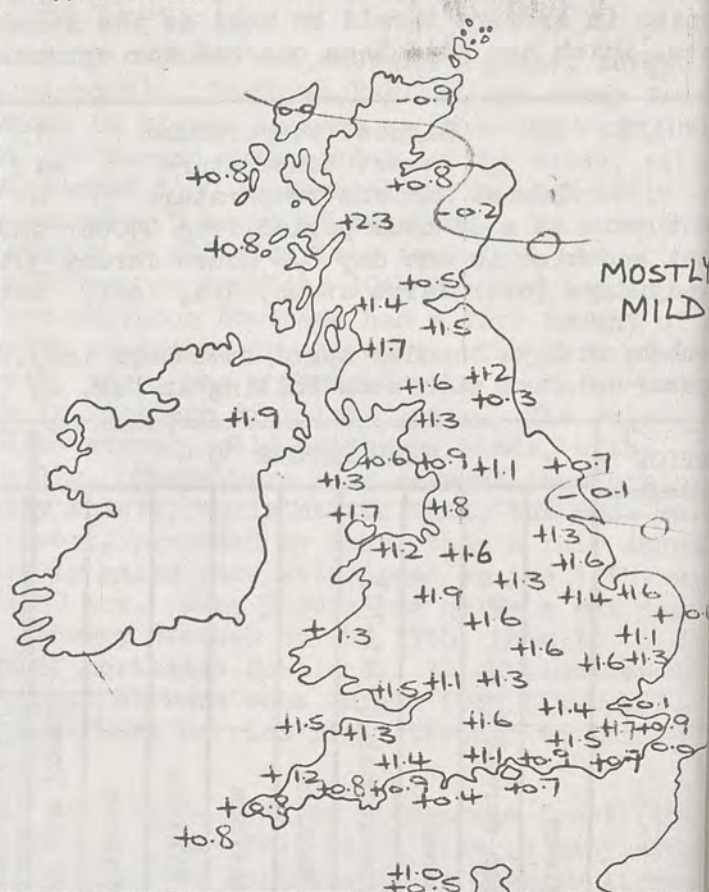 -0.9
0.0
+0.8
+0.8
-0.2
+2.3
+0.8
0
MOSTLY
MILD
+0.5
+1.4
+1.5
+1.7
+1.2
+1.6
+0.3
+1.9
+1.3
+0.6
+0.9
+1.1
+0.7
+1.3
-0.1
+1.7
+1.8
0
+1.3
+1.2
+1.6
+1.6
+1.3
+1.9
+1.4
+1.6
+1.6
+1.3
+1.1
+1.6
+1.6
+1.3
+1.5
+1.1
+1.3
+1.4
-0.1
+1.5
+1.3
+1.6
+1.5
+1.7
+0.9
0.0
+1.4
+1.1
+0.9
+0.7
+1.2
+0.8
+0.9
+0.4
+0.7
+0.8
+0.8
+1.0
+0.5